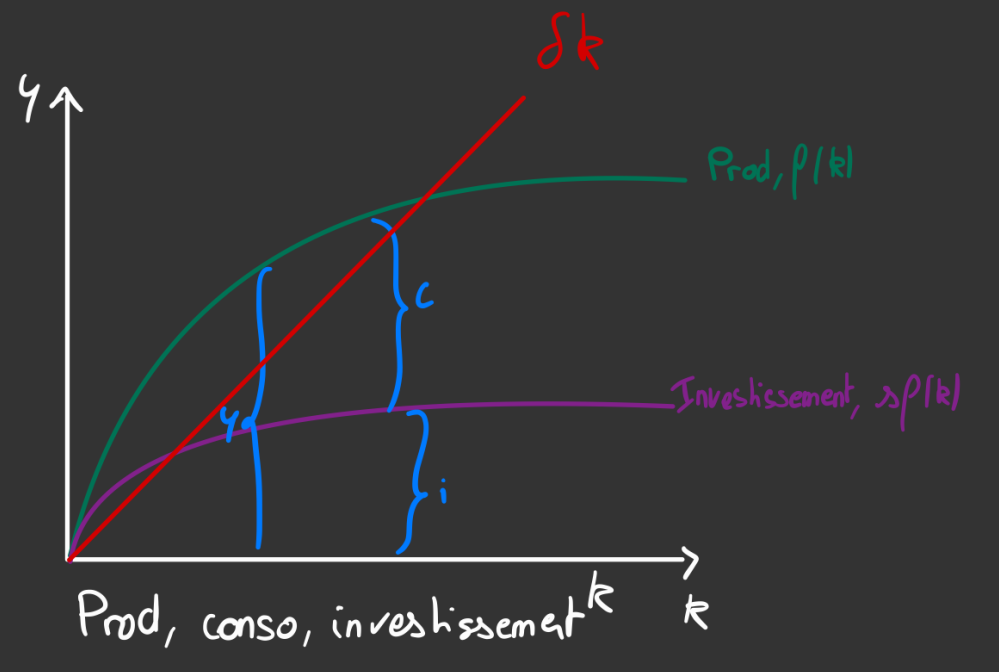 δk
y
Prod, f(k)
c
Investissement, sf(k)
y
i
k
k
Prod, conso, investissement